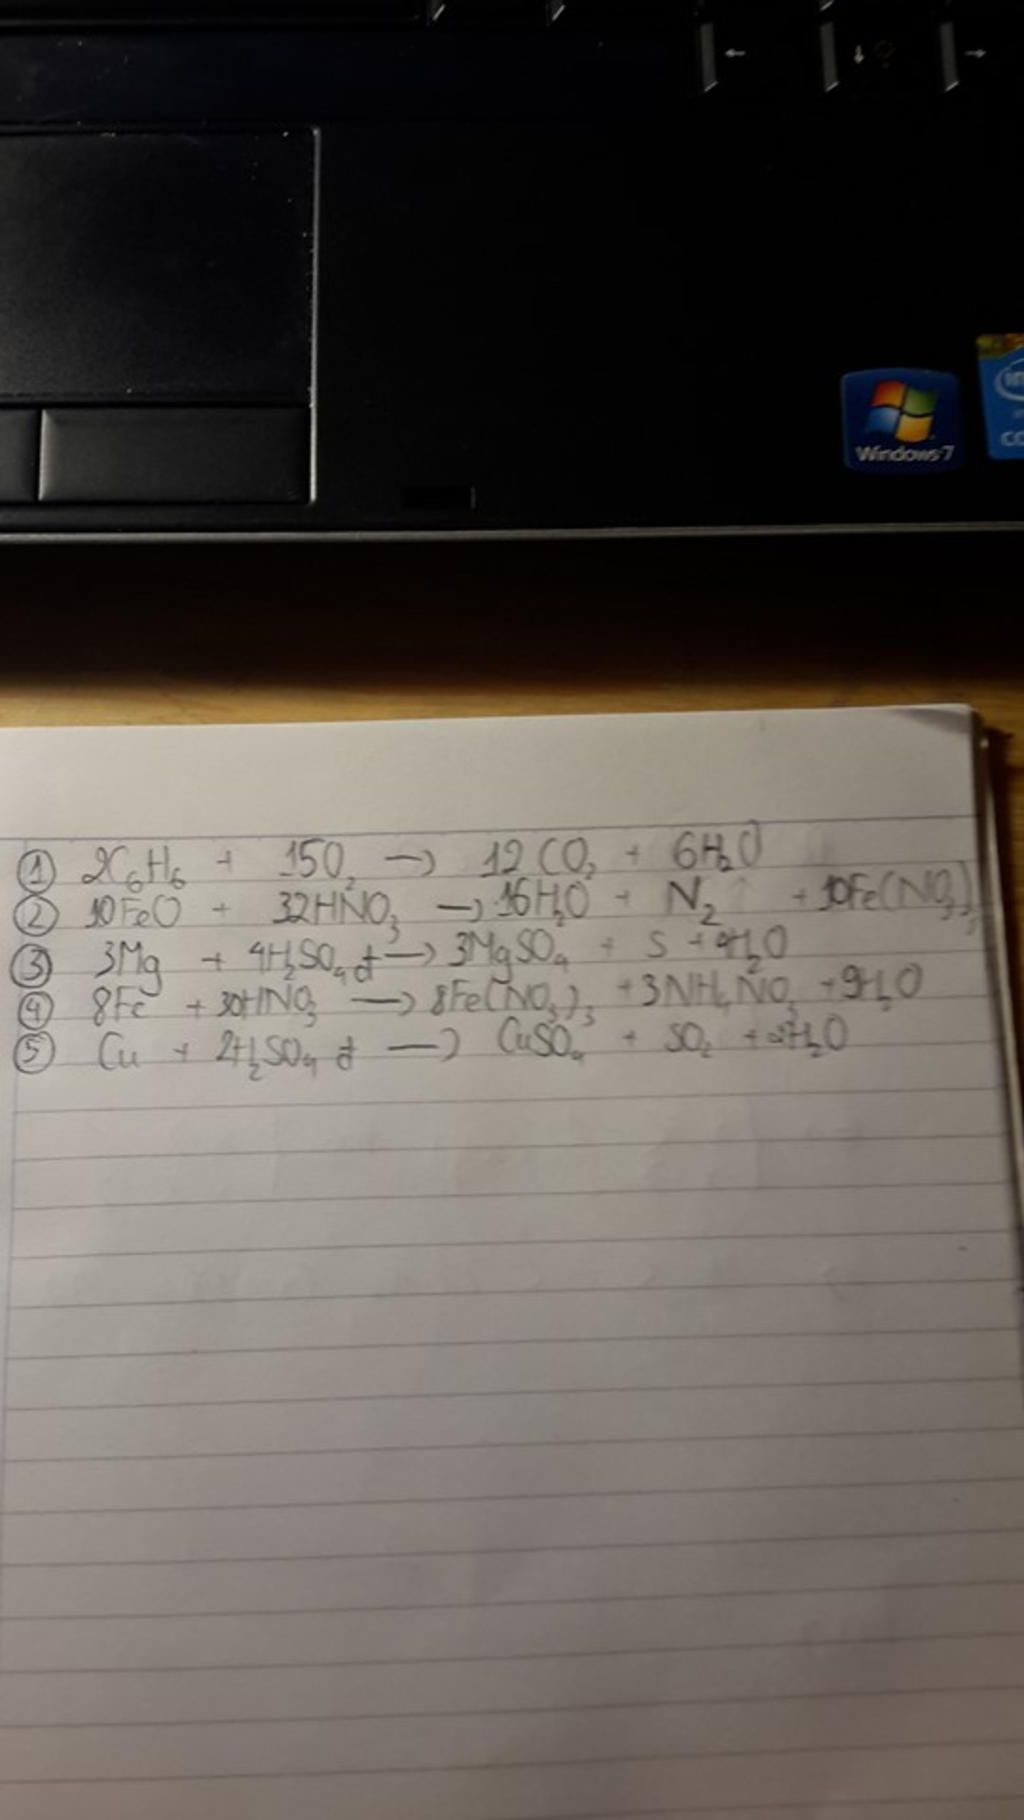 ←
↓
→
Windows 7
① 2C₆H₆ + 15O₂ → 12CO₂ + 6H₂O
② 10FeO + 32HNO₃ → 16H₂O + N₂ ↑ + 10Fe(NO₃)₃
③ 3Mg + 4H₂SO₄ đ → 3MgSO₄ + S + 4H₂O
④ 8Fe + 30HNO₃ → 8Fe(NO₃)₃ + 3NH₄NO₃ + 9H₂O
⑤ Cu + 2H₂SO₄ đ → CuSO₄ + SO₂ + 2H₂O